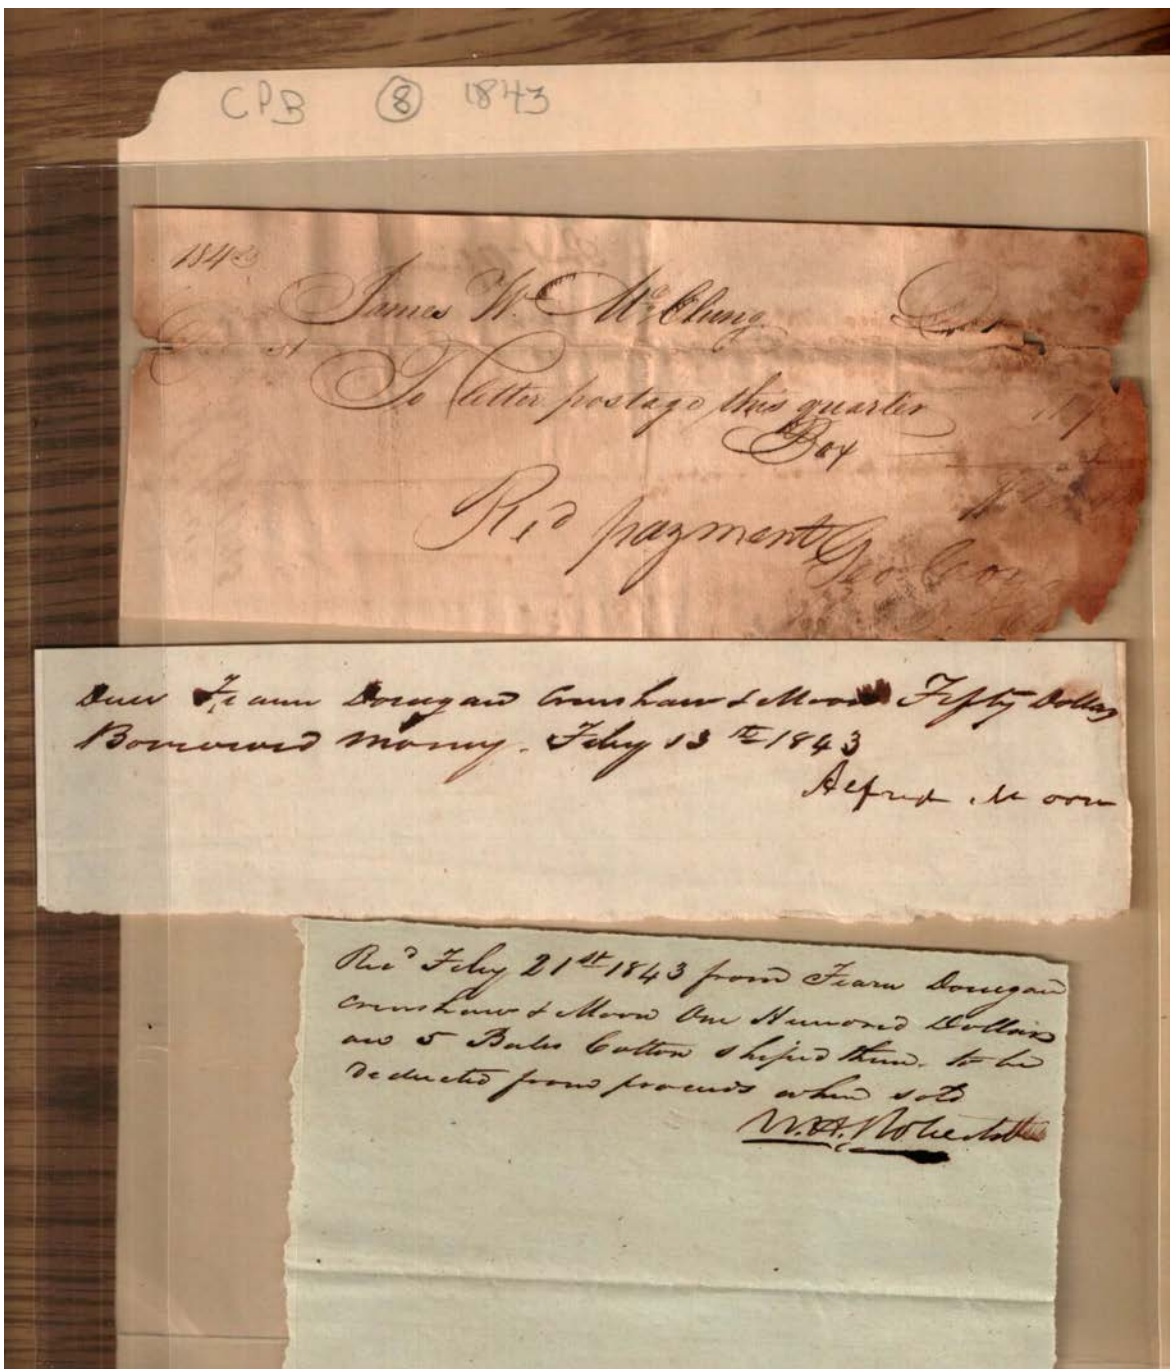 CPB 8 1843
1843
James W. McClung Dr
To letter postage this quarter
Box
Rcd payment Geo
Due Fearn Donegan Crenshaw & Moore Fifty Dollars
Borrowed money. Feby 13th 1843
Alfred Moore
Recd Feby 21st 1843 from Fearn Donegan
Crenshaw & Moore One Hundred Dollars
on 5 Bales Cotton shiped them. to be
deducted from proceeds when sold
W. H. Robertson